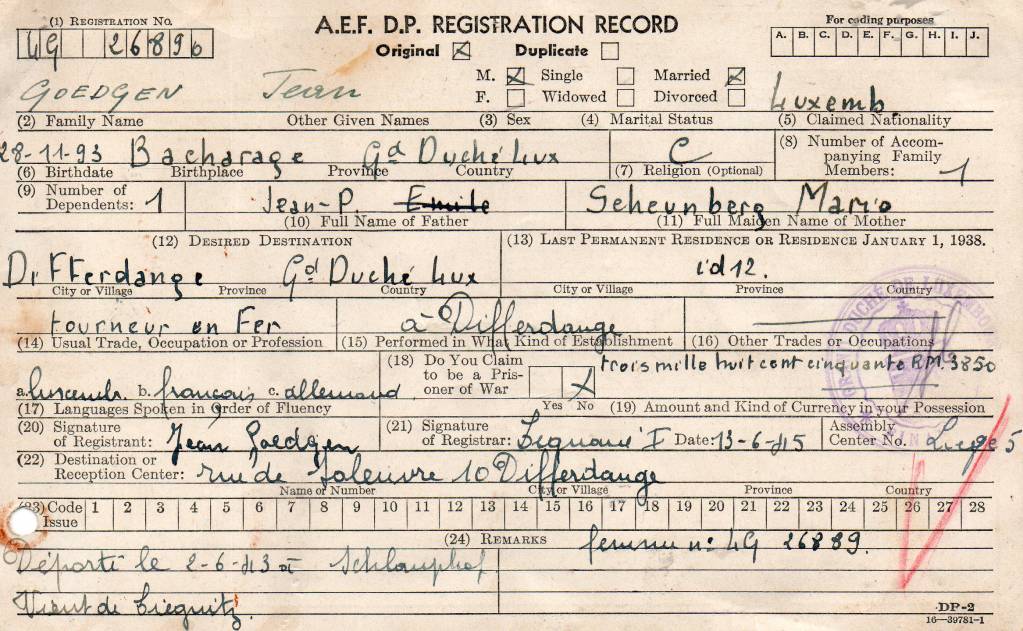 (1) REGISTRATION NO.
LG 26890
A.E.F. D.P. REGISTRATION RECORD
Original ☒ Duplicate ☐
For coding purposes
A. B. C. D. E. F. G. H. I. J.
GOEDGEN Jean
M. ☒ Single ☐ Married ☒
F. ☐ Widowed ☐ Divorced ☐
Luxemb.
(2) Family Name Other Given Names (3) Sex (4) Marital Status (5) Claimed Nationality
28-11-93 Bacharage Gd Duché Lux C
(6) Birthdate Birthplace Province Country (7) Religion (Optional)
(8) Number of Accompanying Family Members: 1
(9) Number of Dependents: 1
Jean-P. Emile
(10) Full Name of Father
Scheunberg Marie
(11) Full Maiden Name of Mother
(12) DESIRED DESTINATION
Differdange Gd Duché Lux
City or Village Province Country
(13) LAST PERMANENT RESIDENCE OR RESIDENCE JANUARY 1, 1938.
id 12.
City or Village Province Country
tourneur en Fer à Differdange
(14) Usual Trade, Occupation or Profession (15) Performed in What Kind of Establishment (16) Other Trades or Occupations
a. luxemb. b. français c. allemand
(17) Languages Spoken in Order of Fluency
(18) Do You Claim to be a Prisoner of War
Yes No ☒
trois mille huit cent cinquante RM. 3850
(19) Amount and Kind of Currency in your Possession
(20) Signature of Registrant: Jean Goedgen
(21) Signature of Registrar: Date: 13-6-45
Assembly Center No. Liege 5
(22) Destination or Reception Center: rue de Soleuvre 10 Differdange
Name or Number City or Village Province Country
(23) Code Issue 1 2 3 4 5 6 7 8 9 10 11 12 13 14 15 16 17 18 19 20 21 22 23 24 25 26 27 28
(24) REMARKS femme n° LG 26889.
Déporté le 2-6-43 Schlauphof
Vient de Liegnitz.
DP-2
16—39781-1